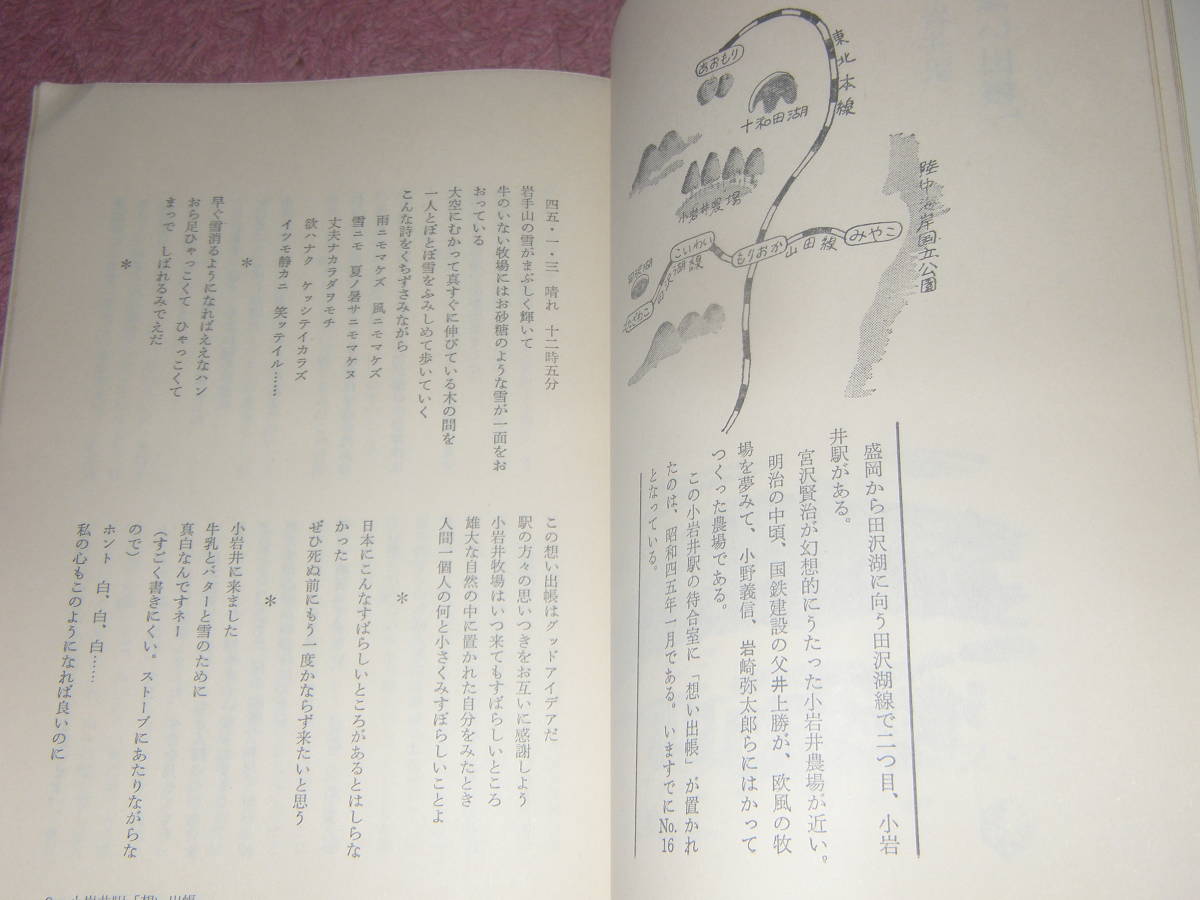 東北本線
あおもり
十和田湖
小岩井農場
陸中海岸国立公園
みやこ
山田線
もりおか
こいわい
盛岡から田沢湖に向う田沢湖線で二つ目、小岩
井駅がある。
宮沢賢治が幻想的にうたった小岩井農場が近い。
明治の中頃、国鉄建設の父井上勝が、欧風の牧
場を夢みて、小野義信、岩崎弥太郎らにはかって
つくった農場である。
この小岩井駅の待合室に「想い出帳」が置かれ
たのは、昭和四五年一月である。いますでにNo.16
となっている。
四五・一・三　晴れ　十二時五分
岩手山の雪がまぶしく輝いて
牛のいない牧場にはお砂糖のような雪が一面をお
おっている
大空にむかって真すぐに伸びている木の間を
一人とぼとぼ雪をふみしめて歩いていく
こんな詩をくちずさみながら
雨ニモマケズ　風ニモマケズ
雪ニモ　夏ノ暑サニモマケヌ
丈夫ナカラダヲモチ
欲ハナク　ケッシテイカラズ
イツモ静カニ　笑ッテイル……
＊
早ぐ雪消るようになればええなハン
おら足ひゃっこくて　ひゃっこくて
まっで　しばれるみでえだ
＊
この想い出帳はグッドアイデアだ
駅の方々の思いつきをお互いに感謝しよう
小岩井牧場はいつ来てもすばらしいところ
雄大な自然の中に置かれた自分をみたとき
人間一個人の何と小さくみすぼらしいことよ
＊
日本にこんなすばらしいところがあるとはしらな
かった
ぜひ死ぬ前にもう一度かならず来たいと思う
＊
小岩井に来ました
牛乳とバターと雪のために
真白なんですネー
（すごく書きにくい。ストーブにあたりながらな
ので）
ホント　白、白、白……
私の心もこのようになれば良いのに